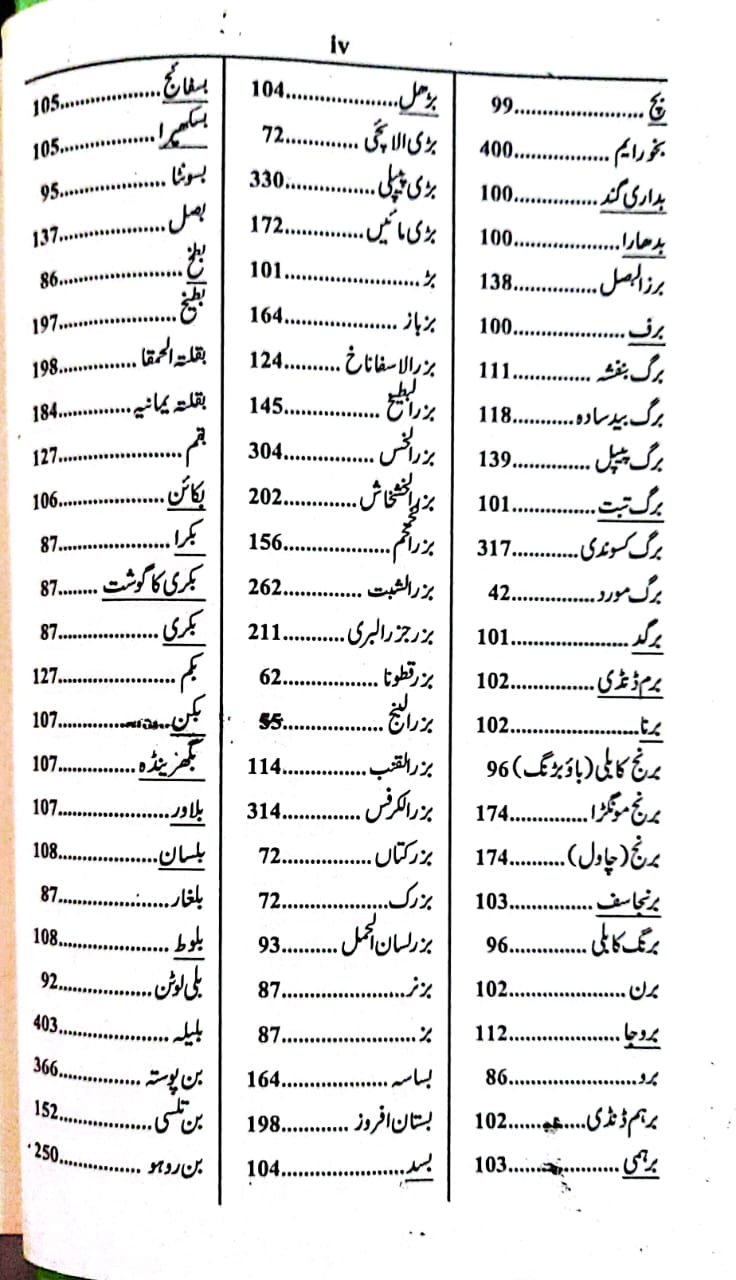 iv
بچ......................99
بخور ایم ................400
بداری گند...............100
بدھارا...................100
برز البصل...............138
برف......................100
برگ بنفشہ ..............111
برگ بید سادہ...........118
برگ پیپل ...............139
برگ تبت................101
برگ کسوندی............317
برگ مورد................42
برگد......................101
برم ڈنڈی................102
برنا.......................102
برنج کابلی (باؤ بڑنگ) 96
برنج مونگڑا..............174
برنج (چاول)..........174
برنجاسف................103
برنگ کابلی ..............96
برن ......................102
بروجا....................112
برو.......................86
برہم ڈنڈی...............102
برہمی....................103
بڑھل....................104
بڑی الائچی ..............72
بڑی پیپلی................330
بڑی مائیں...............172
بڑ ........................101
بزباز ....................164
بزر الاسفاناخ ...........124
بزر البطیخ ...............145
بزر الخس ...............304
بزر الخشخاش............202
بزر الخم.................156
بزر الشبت ..............262
بزر جزر البری...........211
بزر قطونا ................62
بزر البنج .................55
بزر القنب................114
بزر الکرفس..............314
بزر کتاں ................72
بزرک....................72
بزر لسان الحمل .........93
بزنر......................87
بز ........................87
بساسہ ...................164
بستان افروز .............198
بسد......................104
بسفائج ...................105
بسکھپرا...................105
بسونٹا ...................95
بصل.....................137
بطخ ......................86
بطیخ .....................197
بقلتہ الحمقا ...............198
بقلتہ یمانیہ...............184
بقم .......................127
بکائن ....................106
بکرا ......................87
بکری کا گوشت ........87
بکری ....................87
بکم ......................127
بکن......................107
بگھرینڈہ ................107
بلاور.....................107
بلسان....................108
بلغار.....................87
بلوط .....................108
بلی لوٹن.................92
بلیلہ .....................403
بن پوستہ ................366
بن تلسی.................152
بن روہو ................250